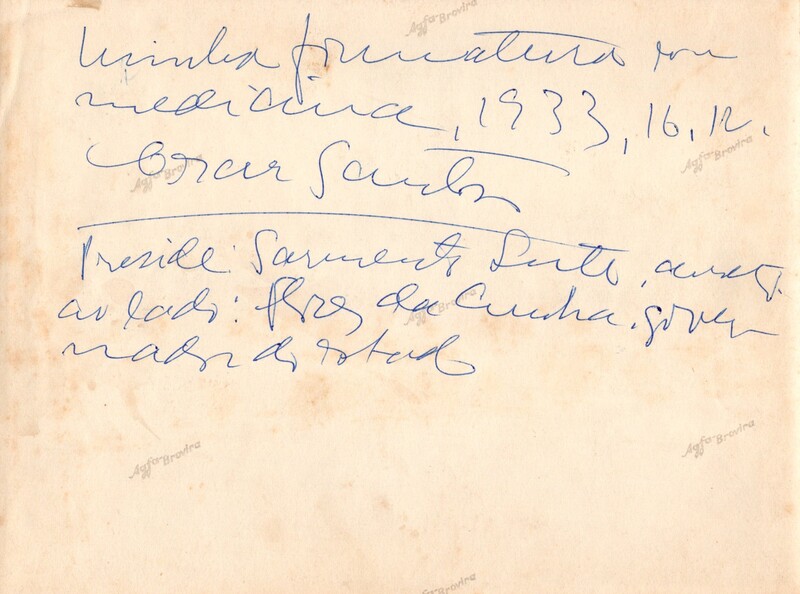 Agfa-Brovira
Minha formatura em
medicina, 1933, 16, 12.
Agfa-Brovira
Agfa-Brovira
Cezar Santos
Preside: Sarmento Leite,
ao lado: Flores da Cunha, gover
Agfa-Brovira
nador do estado
Agfa-Brovira
Agfa-Brovira
Agfa-Brovira